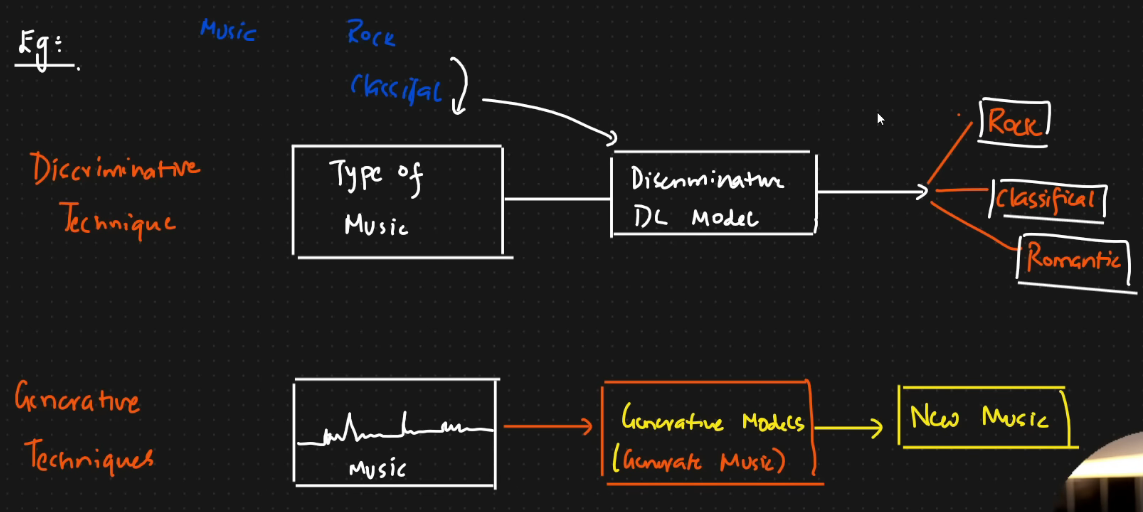 Eg:
Music Rock
Classifal
Discriminative
Technique
Type of
Music
Discriminative
DL Model
Rock
Classifical
Romantic
Generative
Techniques
Music
Generative Models
(Generate Music)
New Music